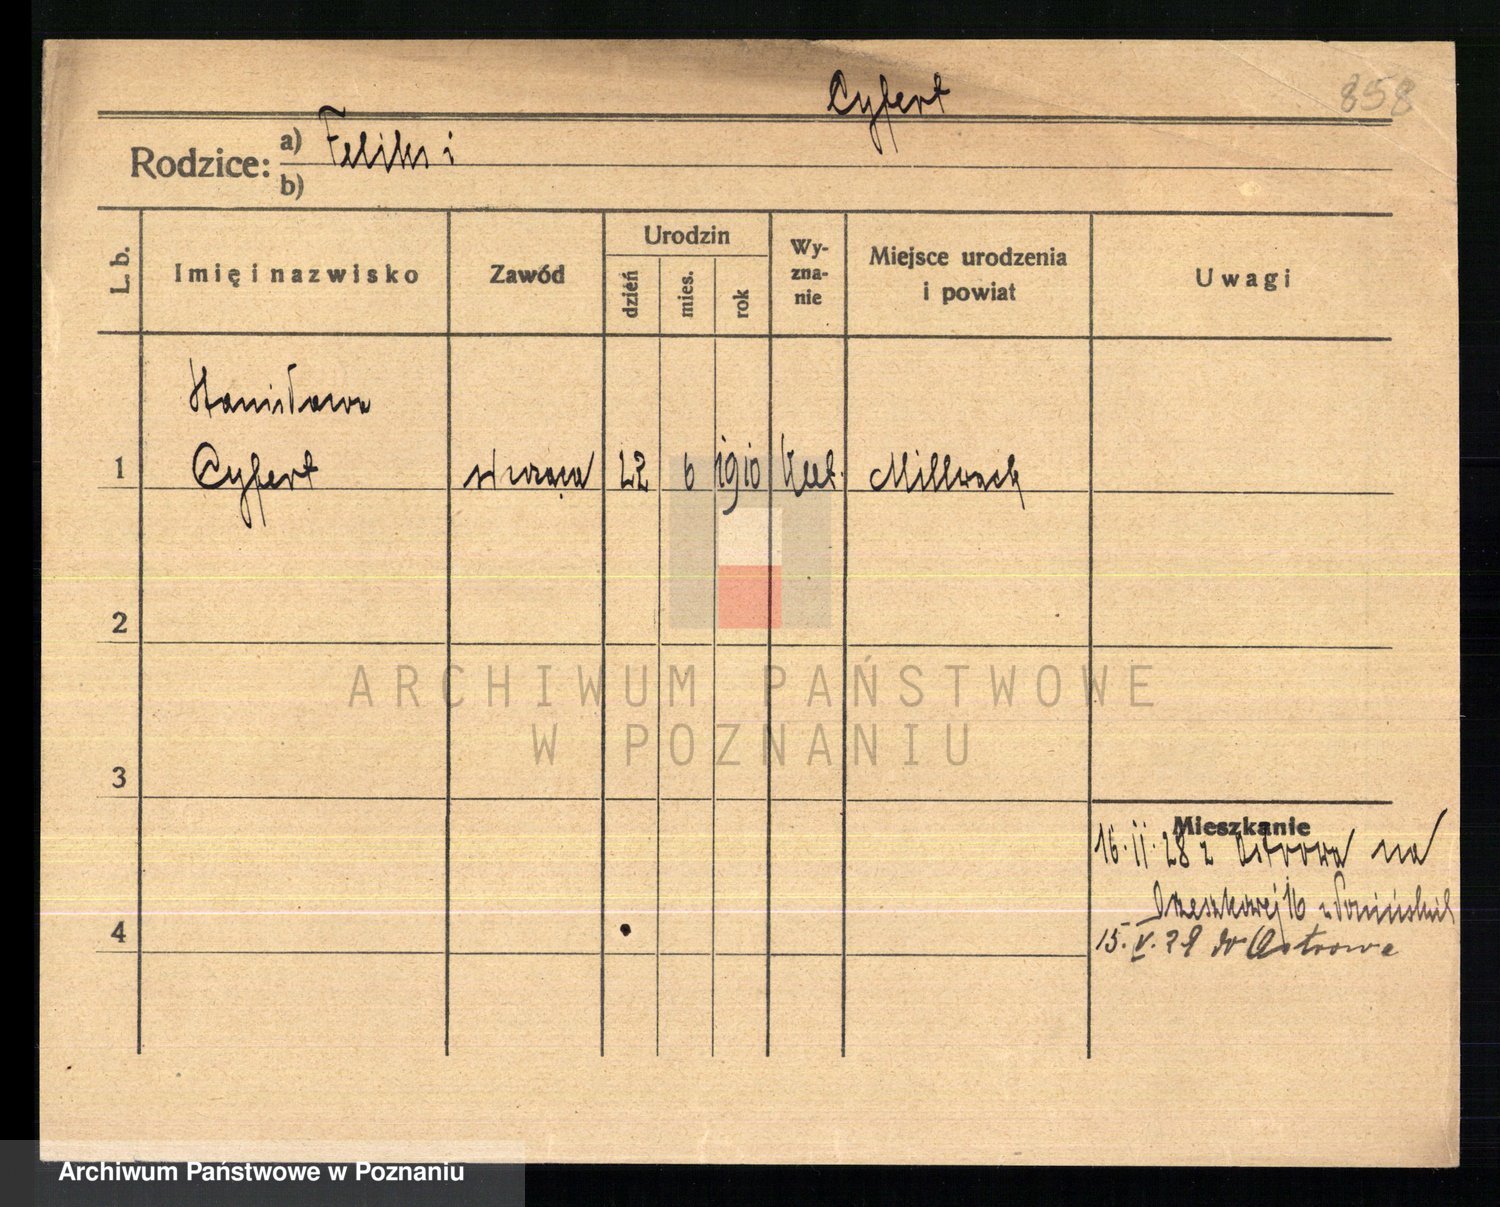 Cyfert
858
Rodzice: a) Feliks i
b)
L. b.
Imię i nazwisko
Zawód
Urodzin
dzień
mies.
rok
Wy-
zna-
nie
Miejsce urodzenia
i powiat
Uwagi
Stanisława
1 Cyfert 22 6 1910 kat.
2
3
4
Mieszkanie
16.II.28 z Ostrowa na
Orzeszkowej 16
15.V.29 do Ostrowa
ARCHIWUM PAŃSTWOWE
W POZNANIU
Archiwum Państwowe w Poznaniu